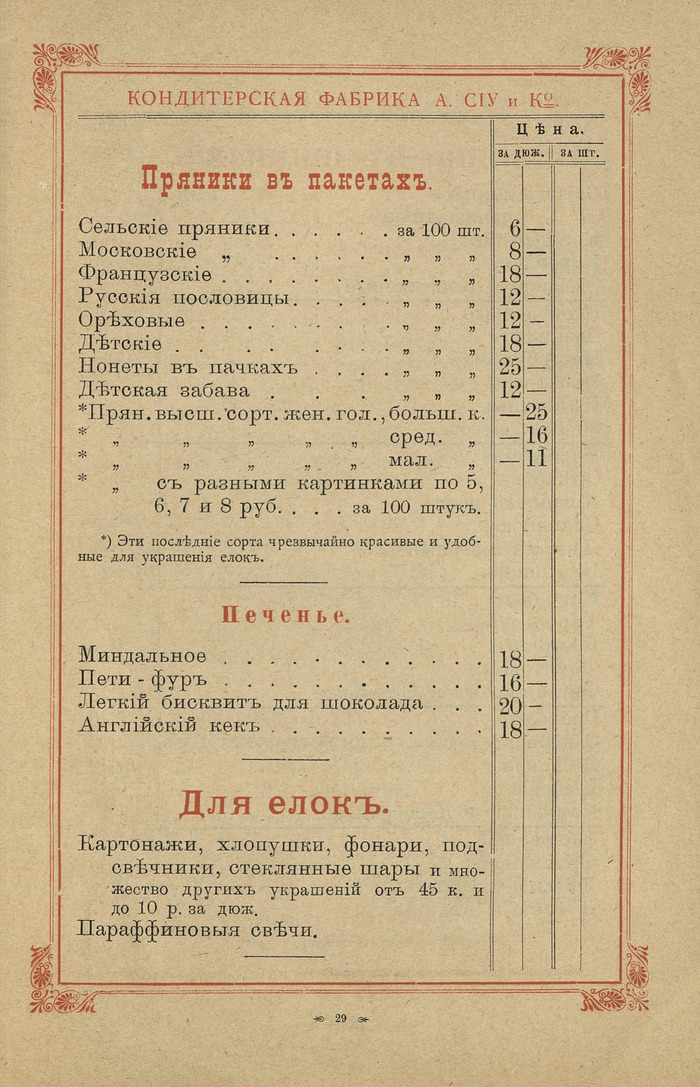 КОНДИТЕРСКАЯ ФАБРИКА А. СІУ и Ко.
Цѣна.
ЗА ДЮЖ. ЗА ШТ.
Пряники въ пакетахъ.
Сельскіе пряники. . . . . . за 100 шт. 6 —
Московскіе „ . . . . . . „ „ „ 8 —
Французскіе . . . . . . . . „ „ „ 18 —
Русскія пословицы. . . . . „ „ „ 12 —
Орѣховые . . . . . . . . „ „ „ 12 —
Дѣтскіе . . . . . . . „ „ „ 18 —
Нонеты въ пачкахъ . . . . „ „ „ 25 —
Дѣтская забава . . . . „ „ „ 12 —
*Прян. высш. сорт. жен. гол., больш. к. — 25
* „ „ „ „ „ сред. „ — 16
* „ „ „ „ „ мал. „ — 11
* „ съ разными картинками по 5,
6, 7 и 8 руб. . . . за 100 штукъ.
*) Эти послѣдніе сорта чрезвычайно красивые и удоб-
ные для украшенія елокъ.
Печенье.
Миндальное . . . . . . . . . . . 18 —
Пети-фуръ . . . . . . . . . . . 16 —
Легкій бисквитъ для шоколада . . . 20 —
Англійскій кекъ . . . . . . . . . . 18 —
Для елокъ.
Картонажи, хлопушки, фонари, под-
свѣчники, стеклянные шары и мно-
жество другихъ украшеній отъ 45 к. и
до 10 р. за дюж.
Параффиновыя свѣчи.
29